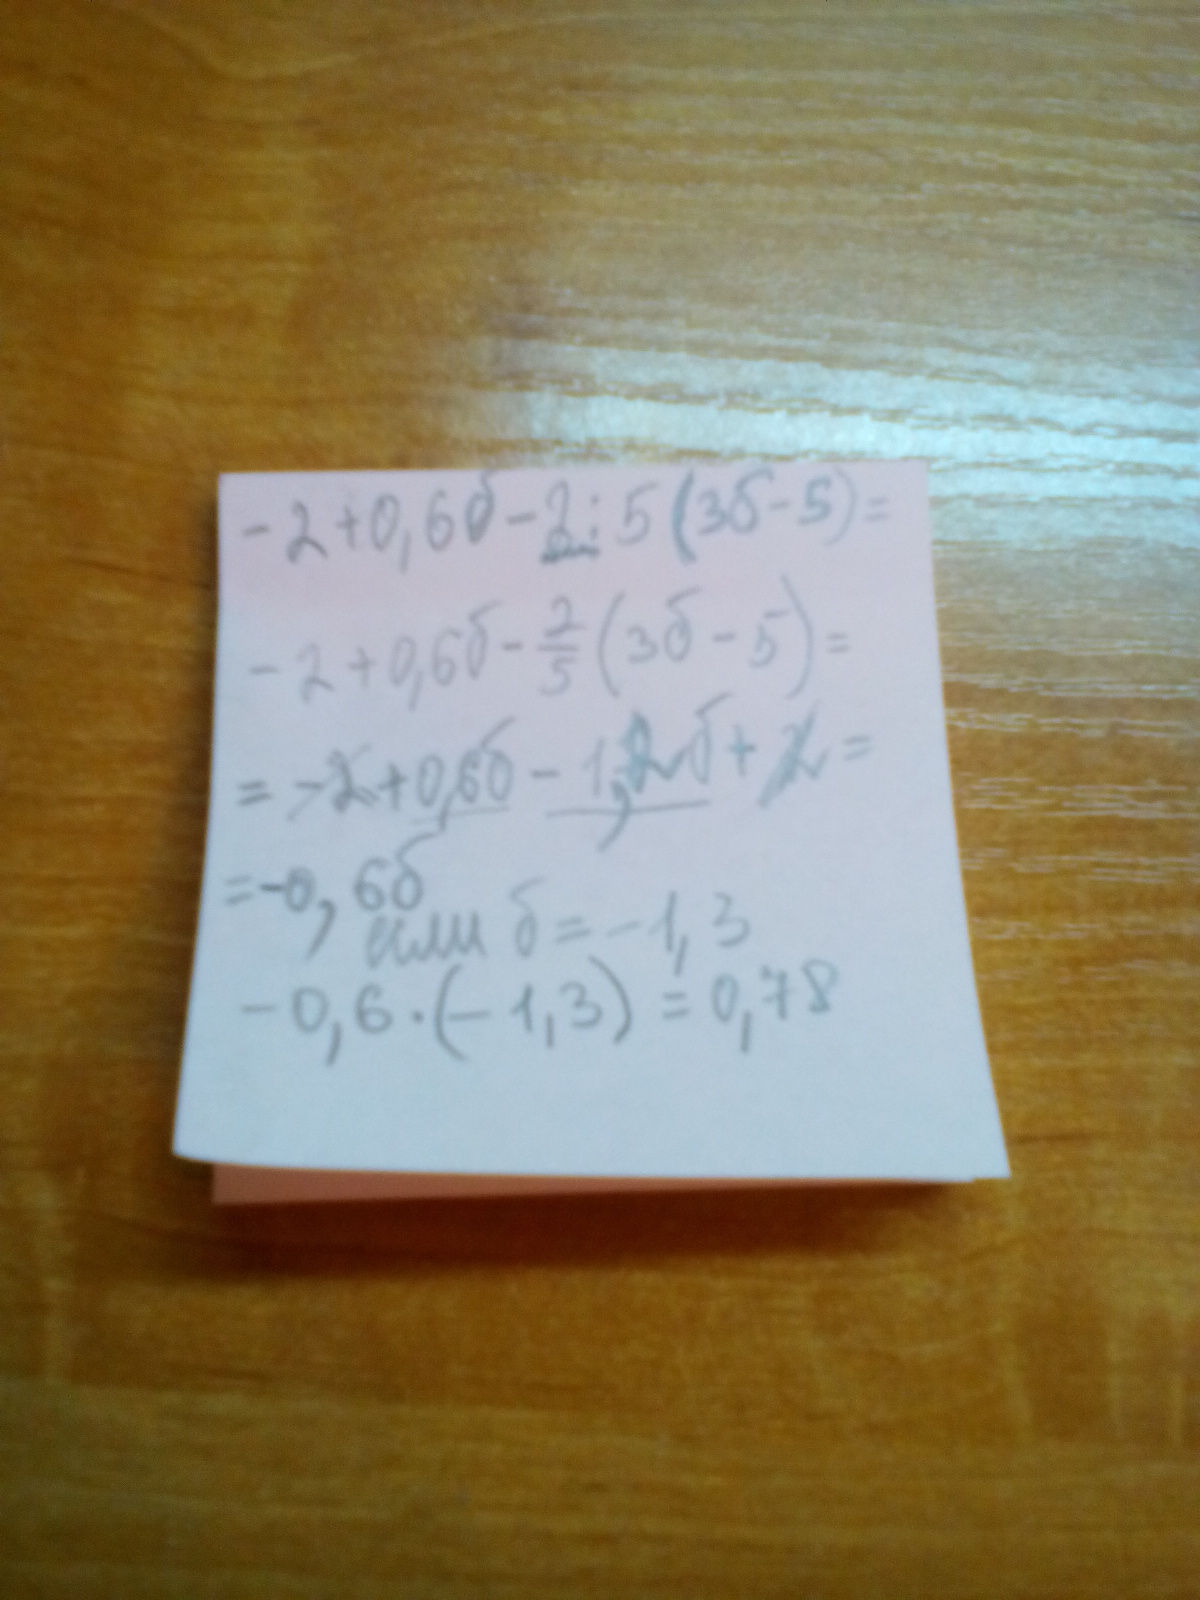 -2+0,6б-2:5(3б-5)=
-2+0,6б-2/5(3б-5)=
=-2+0,6б-1,2б+2=
=-0,6б
или б=-1,3
-0,6·(-1,3)=0,78